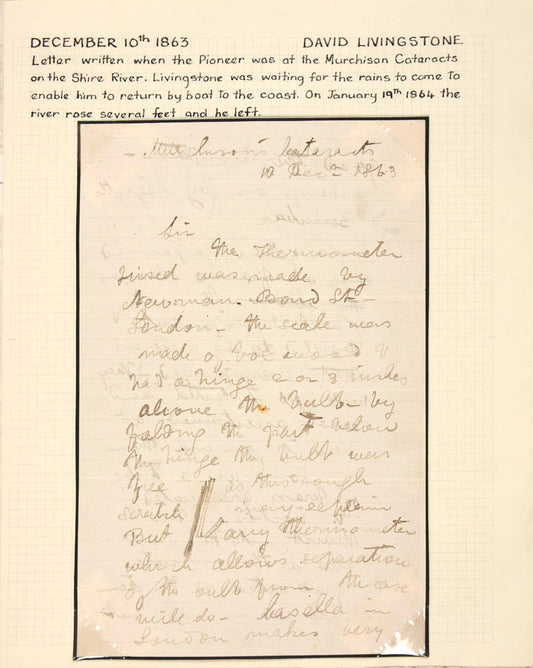 DECEMBER 10th 1863 DAVID LIVINGSTONE
Letter written when the Pioneer was at the Murchison Cataracts
on the Shire River. Livingstone was waiting for the rains to come to
enable him to return by boat to the coast. On January 19th 1864 the
river rose several feet and he left.
Murchison's Cataracts
10 Decr 1863
Sir
The Thermometer
I used was made by
Newman. Bond St -
London - the scale was
made of box wood &
had a hinge 2 or 3 inches
above the bulb - by
folding the part below
the hinge the bulb was
free as this rough
scratch may explain
But any thermometer
which allows separation
of the bulb from the case
will do - Casella in
London makes very